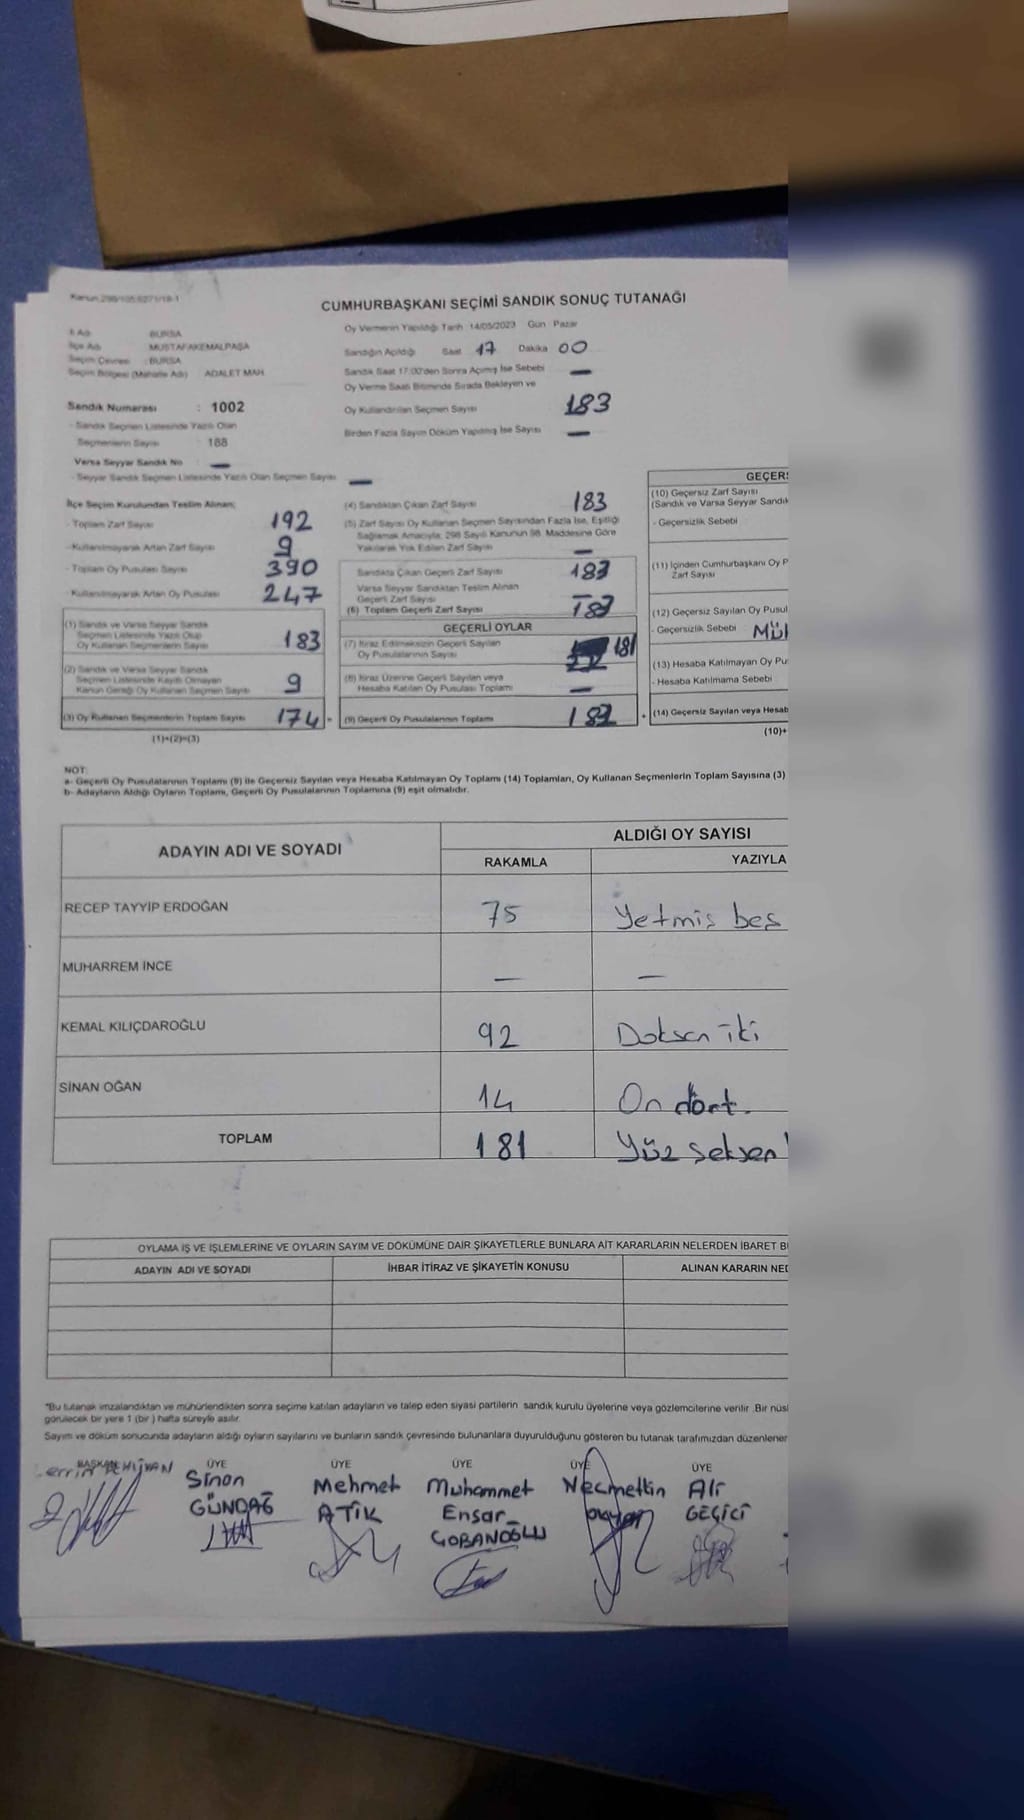 Kanun:298/105;6271/19-1
CUMHURBAŞKANI SEÇİMİ SANDIK SONUÇ TUTANAĞI
İl Adı : BURSA
İlçe Adı : MUSTAFAKEMALPAŞA
Seçim Çevresi : BURSA
Seçim Bölgesi (Mahalle Adı) ADALET MAH.
Oy Vermenin Yapıldığı Tarih 14/05/2023 Gün Pazar
Sandığın Açıldığı Saat 17 Dakika 00
Sandık Saat 17.00'den Sonra Açılmış İse Sebebi —
Oy Verme Saati Bitiminde Sırada Bekleyen ve
Oy Kullandırılan Seçmen Sayısı 183
Birden Fazla Sayım Döküm Yapılmış İse Sayısı —
Sandık Numarası : 1002
- Sandık Seçmen Listesinde Yazılı Olan
Seçmenlerin Sayısı : 188
Varsa Seyyar Sandık No : —
- Seyyar Sandık Seçmen Listesinde Yazılı Olan Seçmen Sayısı —
İlçe Seçim Kurulundan Teslim Alınan;
- Toplam Zarf Sayısı 192
- Kullanılmayarak Artan Zarf Sayısı 9
- Toplam Oy Pusulası Sayısı 390
- Kullanılmayarak Artan Oy Pusulası 247
(1) Sandık ve Varsa Seyyar Sandık
Seçmen Listesinde Yazılı Olup
Oy Kullanan Seçmenlerin Sayısı 183
(2) Sandık ve Varsa Seyyar Sandık
Seçmen Listesinde Kaydı Olmayan
Kanun Gereği Oy Kullanan Seçmen Sayısı 9
(3) Oy Kullanan Seçmenlerin Toplam Sayısı 174 =
(1)+(2)=(3)
(4) Sandıktan Çıkan Zarf Sayısı 183
(5) Zarf Sayısı Oy Kullanan Seçmen Sayısından Fazla İse, Eşitliği
Sağlamak Amacıyla; 298 Sayılı Kanunun 98. Maddesine Göre
Yakılarak Yok Edilen Zarf Sayısı —
Sandıkta Çıkan Geçerli Zarf Sayısı 183
Varsa Seyyar Sandıktan Teslim Alınan
Geçerli Zarf Sayısı —
(6) Toplam Geçerli Zarf Sayısı 183
GEÇERLİ OYLAR
(7) İtiraz Edilmeksizin Geçerli Sayılan
Oy Pusulalarının Sayısı 181
(8) İtiraz Üzerine Geçerli Sayılan veya
Hesaba Katılan Oy Pusulası Toplamı —
(9) Geçerli Oy Pusulalarının Toplamı +
GEÇERS
(10) Geçersiz Zarf Sayısı
(Sandık ve Varsa Seyyar Sandık
- Geçersizlik Sebebi
(11) İçinden Cumhurbaşkanı Oy P
Zarf Sayısı
(12) Geçersiz Sayılan Oy Pusul
- Geçersizlik Sebebi MÜ
(13) Hesaba Katılmayan Oy Pu
- Hesaba Katılmama Sebebi
(14) Geçersiz Sayılan veya Hesab
(10)+
NOT:
a- Geçerli Oy Pusulalarının Toplamı (9) ile Geçersiz Sayılan veya Hesaba Katılmayan Oy Toplamı (14) Toplamları, Oy Kullanan Seçmenlerin Toplam Sayısına (3)
b- Adayların Aldığı Oyların Toplamı, Geçerli Oy Pusulalarının Toplamına (9) eşit olmalıdır.
ADAYIN ADI VE SOYADI
ALDIĞI OY SAYISI
RAKAMLA YAZIYLA
RECEP TAYYİP ERDOĞAN 75 Yetmiş beş
MUHARREM İNCE — —
KEMAL KILIÇDAROĞLU 92 Doksan iki
SİNAN OĞAN 14 On dört.
TOPLAM 181 Yüz seksen
OYLAMA İŞ VE İŞLEMLERİNE VE OYLARIN SAYIM VE DÖKÜMÜNE DAİR ŞİKAYETLERLE BUNLARA AİT KARARLARIN NELERDEN İBARET B
ADAYIN ADI VE SOYADI İHBAR İTİRAZ VE ŞİKAYETİN KONUSU ALINAN KARARIN NED
*Bu tutanak imzalandıktan ve mühürlendikten sonra seçime katılan adayların ve talep eden siyasi partilerin sandık kurulu üyelerine veya gözlemcilerine verilir .Bir nüs
görülecek bir yere 1 (bir ) hafta süreyle asılır.
Sayım ve döküm sonucunda adayların aldığı oyların sayılarını ve bunların sandık çevresinde bulunanlara duyurulduğunu gösteren bu tutanak tarafımızdan düzenlener
BAŞKAN ÜYE ÜYE ÜYE ÜYE ÜYE
Sinan Mehmet Muhammet Necmettin Ali
GÜNDAĞ ATİK Ensar GEÇİCİ
ÇOBANOĞLU